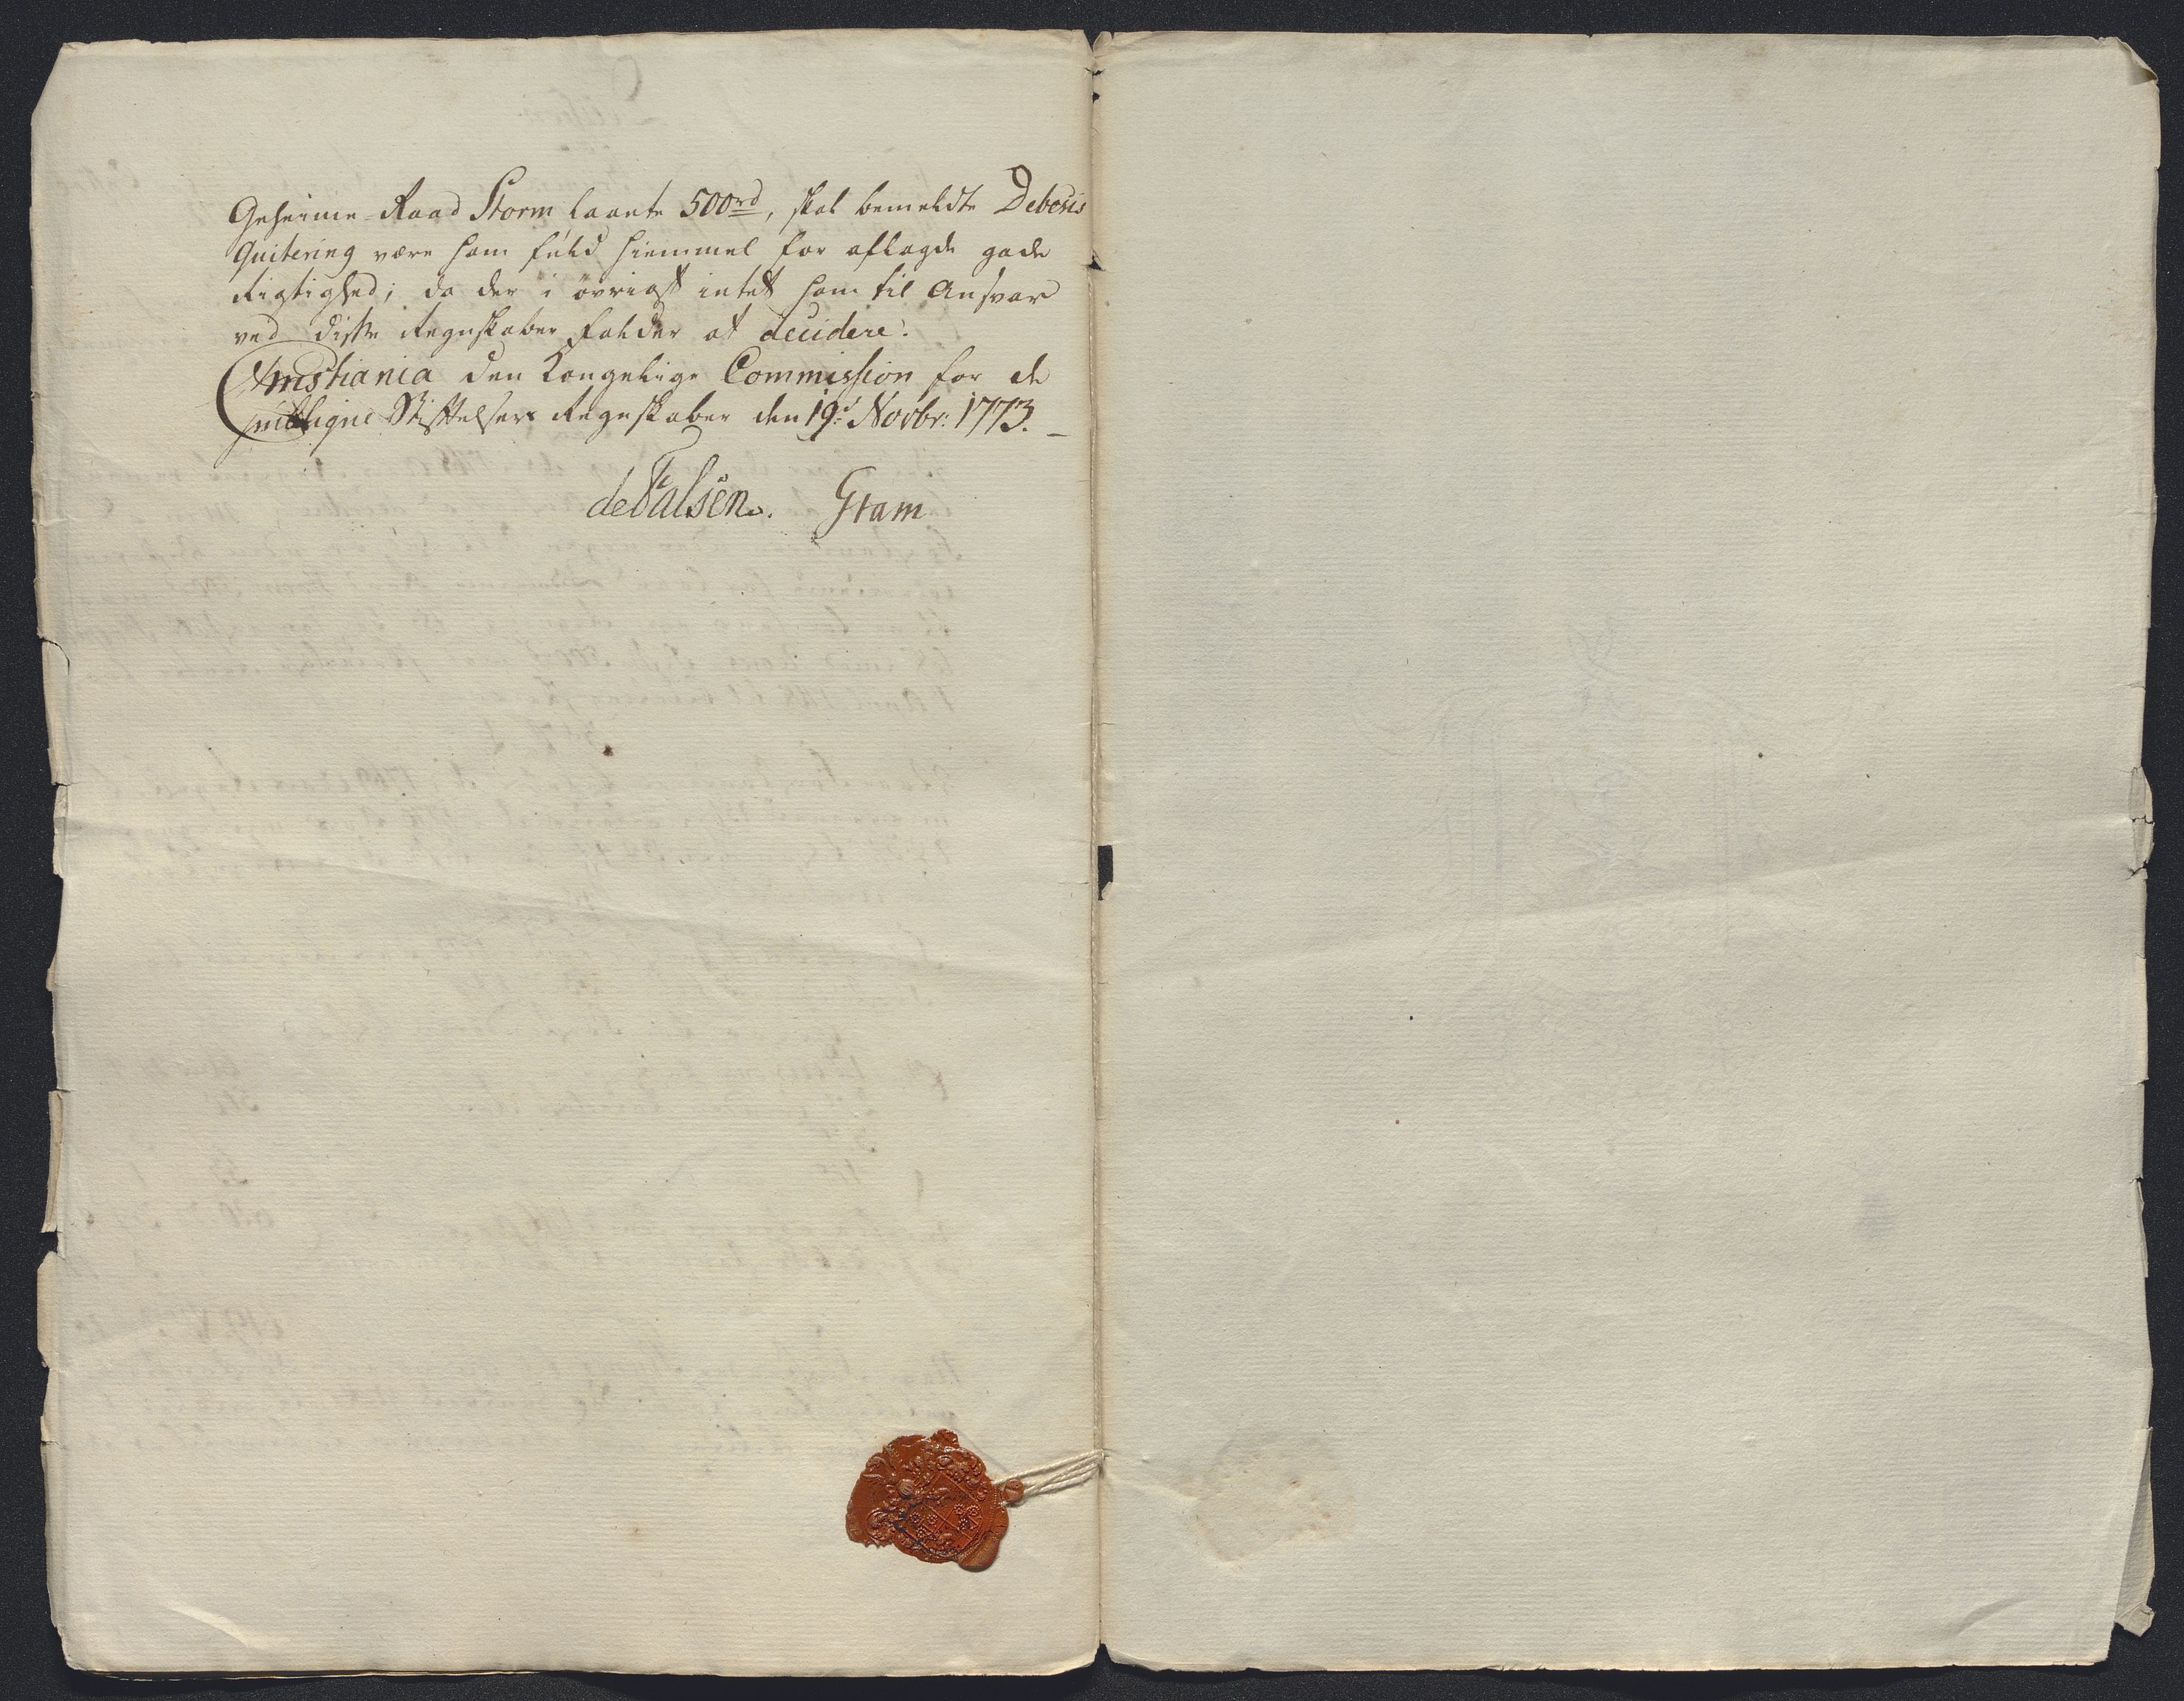 Geheime-Raad Storm laante 500rd, skal bemeldte Decisis
Quitering være ham fuld hiemmel for aflagde gode
Rigtighed; da der i øvrigst intet ham til Ansvar
ved disse Regnskaber falder at decidere.
Christiania den Kongelige Commission for de
publique Stiftelsers Regnskaber den 19de Novbr: 1773.
de Falsen. Gram